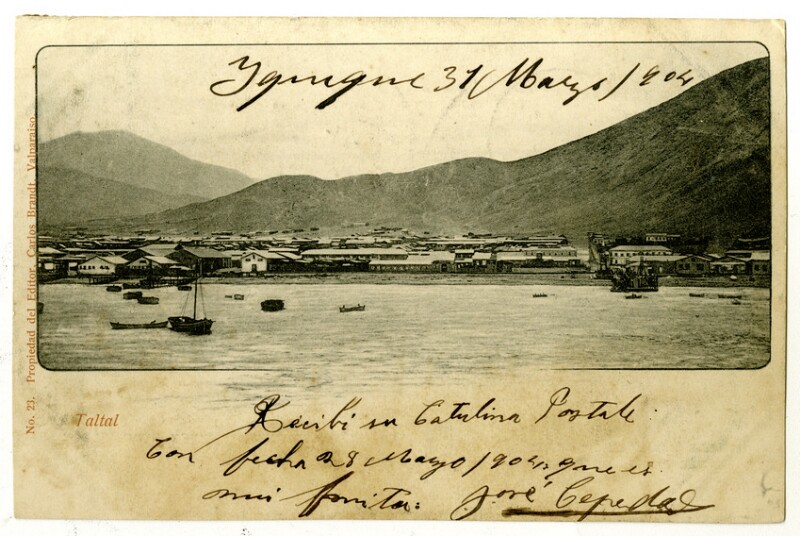 Yquique 31/Marzo/904
No. 23. Propiedad del Editor. Carlos Brandt, Valparaiso.
Taltal
Recibi su Catulina Postale:
Con fecha 28 Mayo/904, que es
mui bonita: José Cepedad